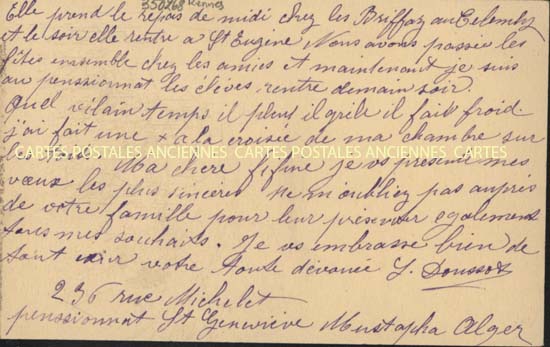 350268 Rennes
Elle prend le repas de midi chez les Briffaz au Telemly
et le soir elle rentre a St Eugène Nous avons passée les
fêtes ensemble chez les amies et maintenant je suis
au penssionnat les élèves rentre demain soir.
Quel vilain temps il pleus il grêle il fait froid.
j'ai fait une x a la croisée de ma chambre sur
CARTES POSTALES ANCIENNES CARTES POSTALES ANCIENNES CARTES
Ma chere fifine je vs present mes
vœux les plus sincères ne m'oubliez pas auprès
de votre famille pour leur presenter egalement
tous mes souhaits. Je vs embrasse bien de
tout cœur votre toute dévouée J. Doussot
236 rue Michelet
penssionnat St Geneviève Mustapha Alger